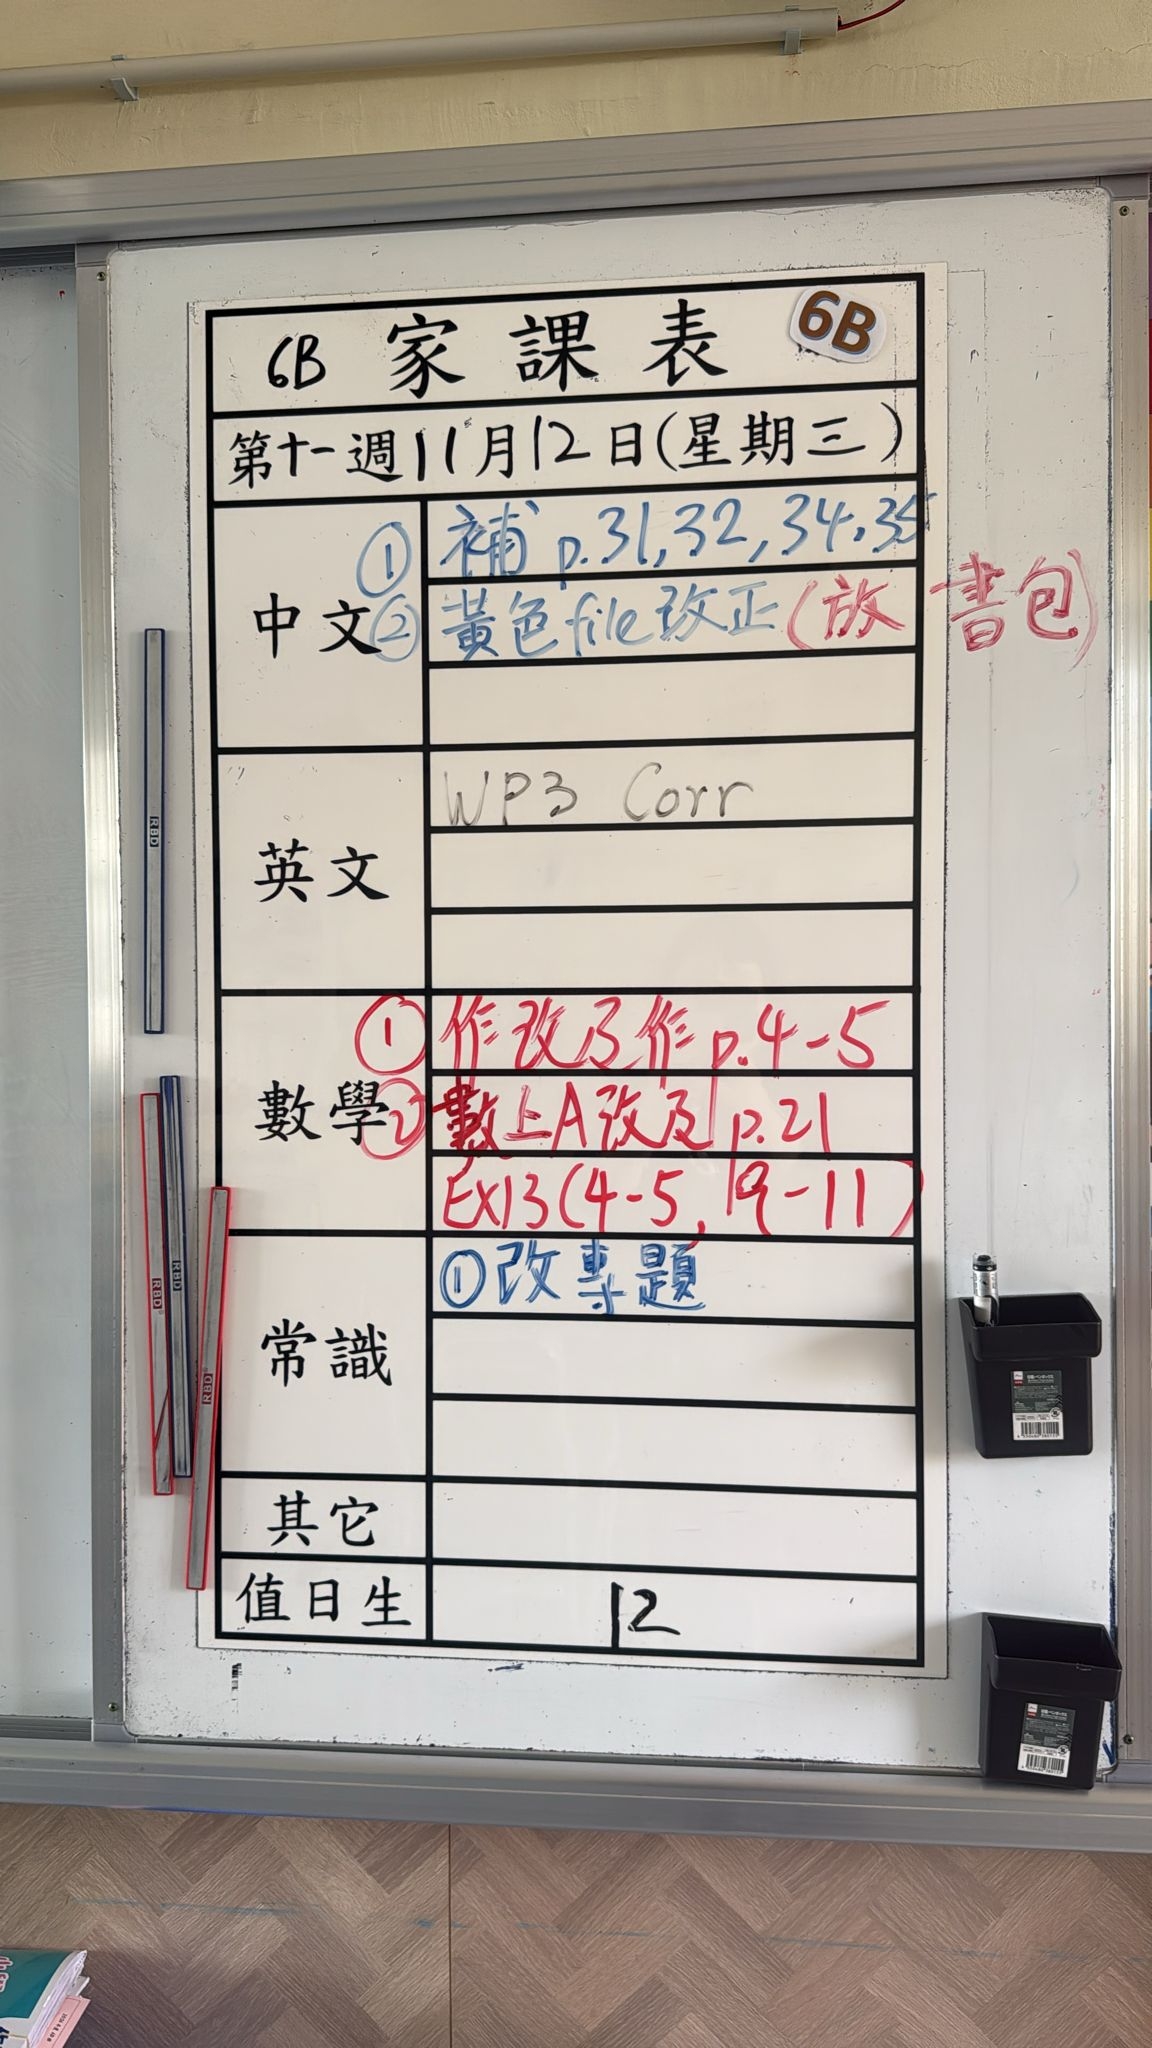 6B 家課表 6B
第十一週11月12日(星期三)
中文
① 補 p.31,32,34,35
② 黃色file改正(放書包)
英文
WP3 Corr
數學
① 作改及作p.4-5
② 數上A改及p.21
EX13(4-5, 19-11)
常識
①改專題
其它
值日生
12
RBD
RBD
RBD
RBD